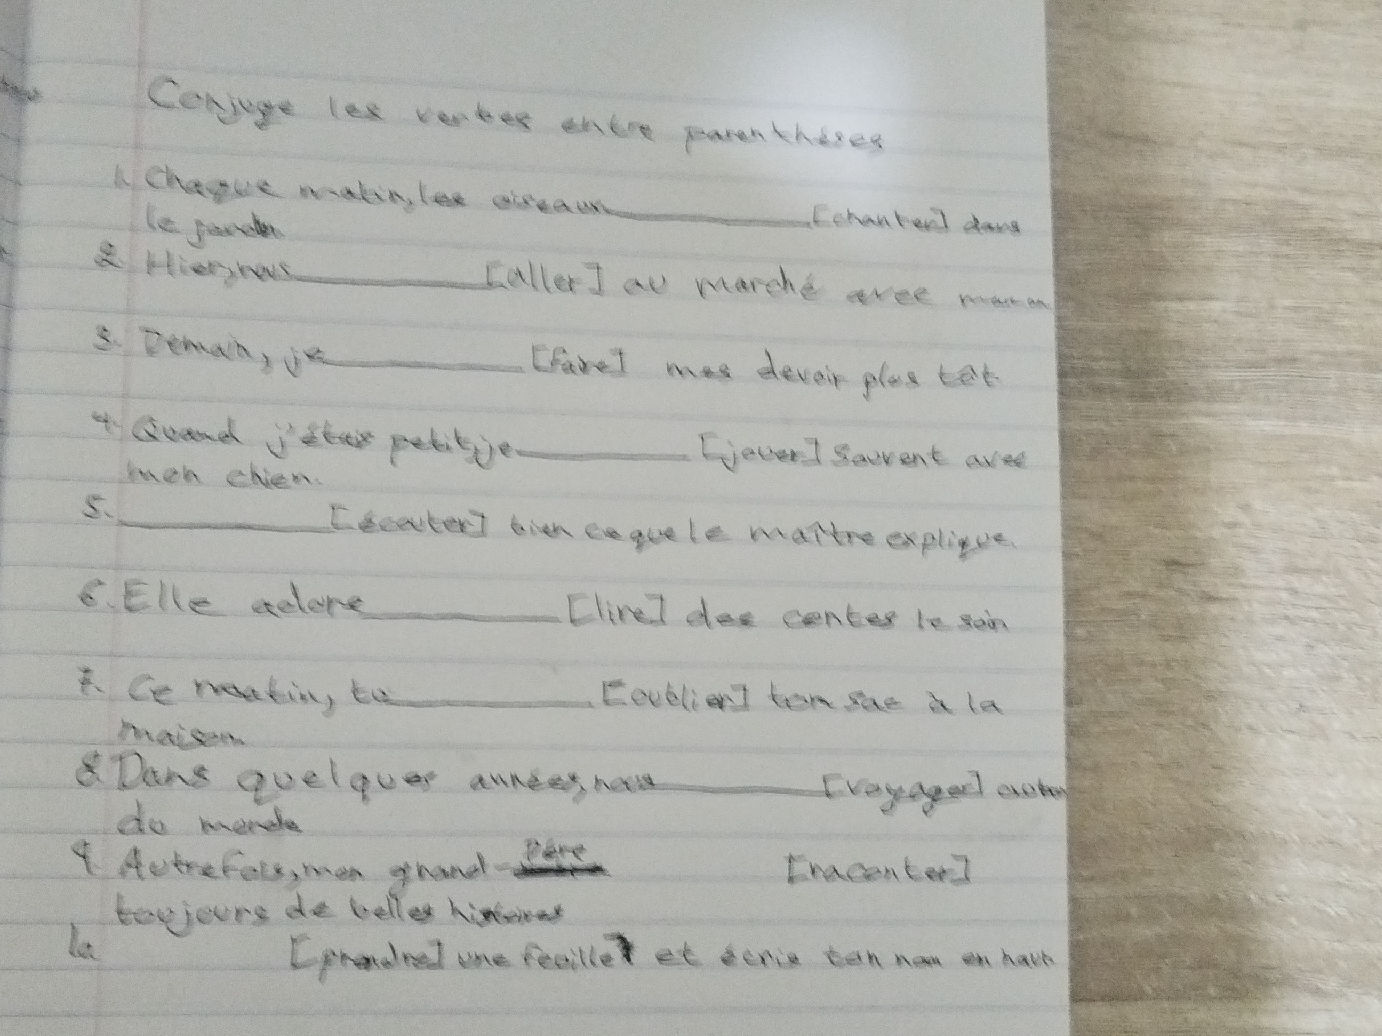 Conjuge les verbes entre parenthéses
1. Chaque matin, les oiseaux ________ [chanter] dans
le jardin
2. Hier, nous ________ [aller] au marché avec maman
3. Demain, je ________ [faire] mes devoir plus tôt
4. Quand j'étais petit, je ________ [jouer] souvent avec
mon chien.
5. ________ [écouter] bien ce que le maître explique.
6. Elle adore ________ [lire] des contes le soir
7. Ce matin, tu ________ [oublier] ton sac à la
maison
8 Dans quelques années, nous ________ [voyager] autour
du monde
9 Autrefois, mon grand-père [raconter]
toujours de belles histoires
10 [prendre] une feuille et écris ton nom en haut